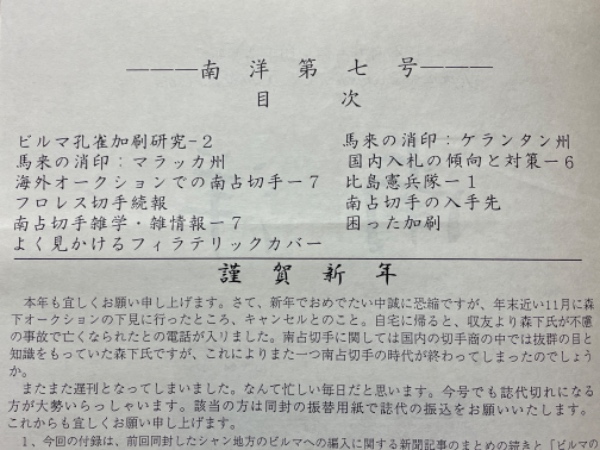 ———南洋第七号———
目次
ビルマ孔雀加刷研究-2
馬来の消印：マラッカ州
海外オークションでの南占切手ー7
フロレス切手続報
南占切手雑学・雑情報ー7
よく見かけるフィラテリックカバー
馬来の消印：ケランタン州
国内入札の傾向と対策ー6
比島憲兵隊ー1
南占切手の入手先
困った加刷
謹賀新年
本年も宜しくお願い申し上げます。さて、新年でおめでたい中誠に恐縮ですが、年末近い11月に森
下オークションの下見に行ったところ、キャンセルとのこと。自宅に帰ると、収友より森下氏が不慮
の事故で亡くなられたとの電話が入りました。南占切手に関しては国内の切手商の中では抜群の目と
知識をもっていた森下氏ですが、これによりまた一つ南占切手の時代が終わってしまったのでしょう
か。
またまた遅刊となってしまいました。なんて忙しい毎日だと思います。今号でも誌代切れになる
方が大勢いらっしゃいます。該当の方は同封の振替用紙で誌代の振込をお願いいたします。
これからも宜しくお願い申し上げます。
1、今回の付録は、前回同封したシャン地方のビルマへの編入に関する新聞記事のまとめの続きと「ビルマの